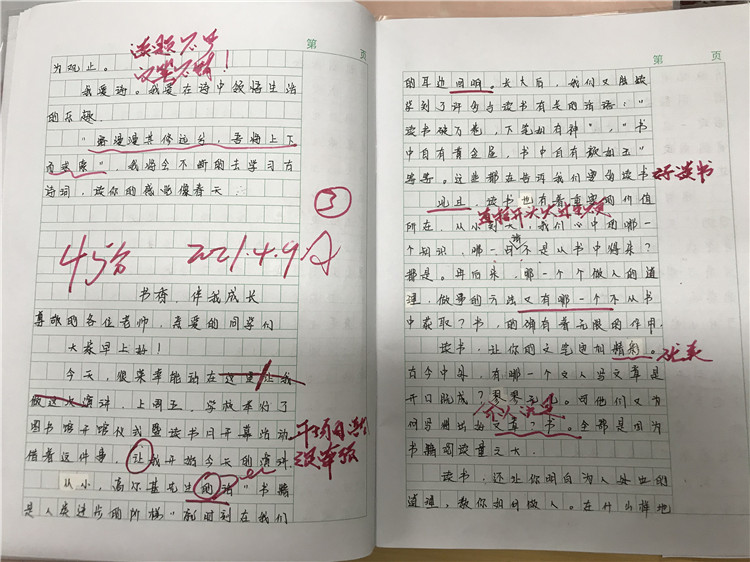 第 页
为观止。
我爱诗。我爱在诗中领悟生活
的乐趣。
"路漫漫其修远兮，吾将上下
而求索"，我将会不断的去学习古
诗词，读你的感觉像春天。
3
45分 2021.4.9
书香，伴我成长
尊敬的各位老师，亲爱的同学们
大家早上好！
今天，很荣幸能站在这里，让我
做这次演讲，上周五，学校举行了
图书馆开馆仪式暨读书日开幕活动
借着这件事，让我开始今天的演讲。
从小，高尔基先生的话"书籍
是人类进步的阶梯"就时刻在我们
第 页
的耳边回响。长大后，我们又陆续
学到了许多与读书有关的俗语："
读书破万卷，下笔如有神"，"书
中自有黄金屋，书中自有颜如玉"
等等。这些都在告诉我们要多读书
好读书
况且，读书也有着重要的价值
所在，从小到大，我们心中的哪一
个知识，哪一词不是从书中得来？
都是。再后来，哪一个个做人的道
理，做事的方法又有哪一个不从书
中获取？书，的确有着无限的作用。
读书，让你的文笔更加精彩。
古今中外，有哪一个文人写文章是
开口既成？寥寥无几。而他们又为
何写得出好文章？书。全都是因为
书籍阅读量之大。
读书，还让你明白为人处世的
道理，教你如何做人。在什么样地